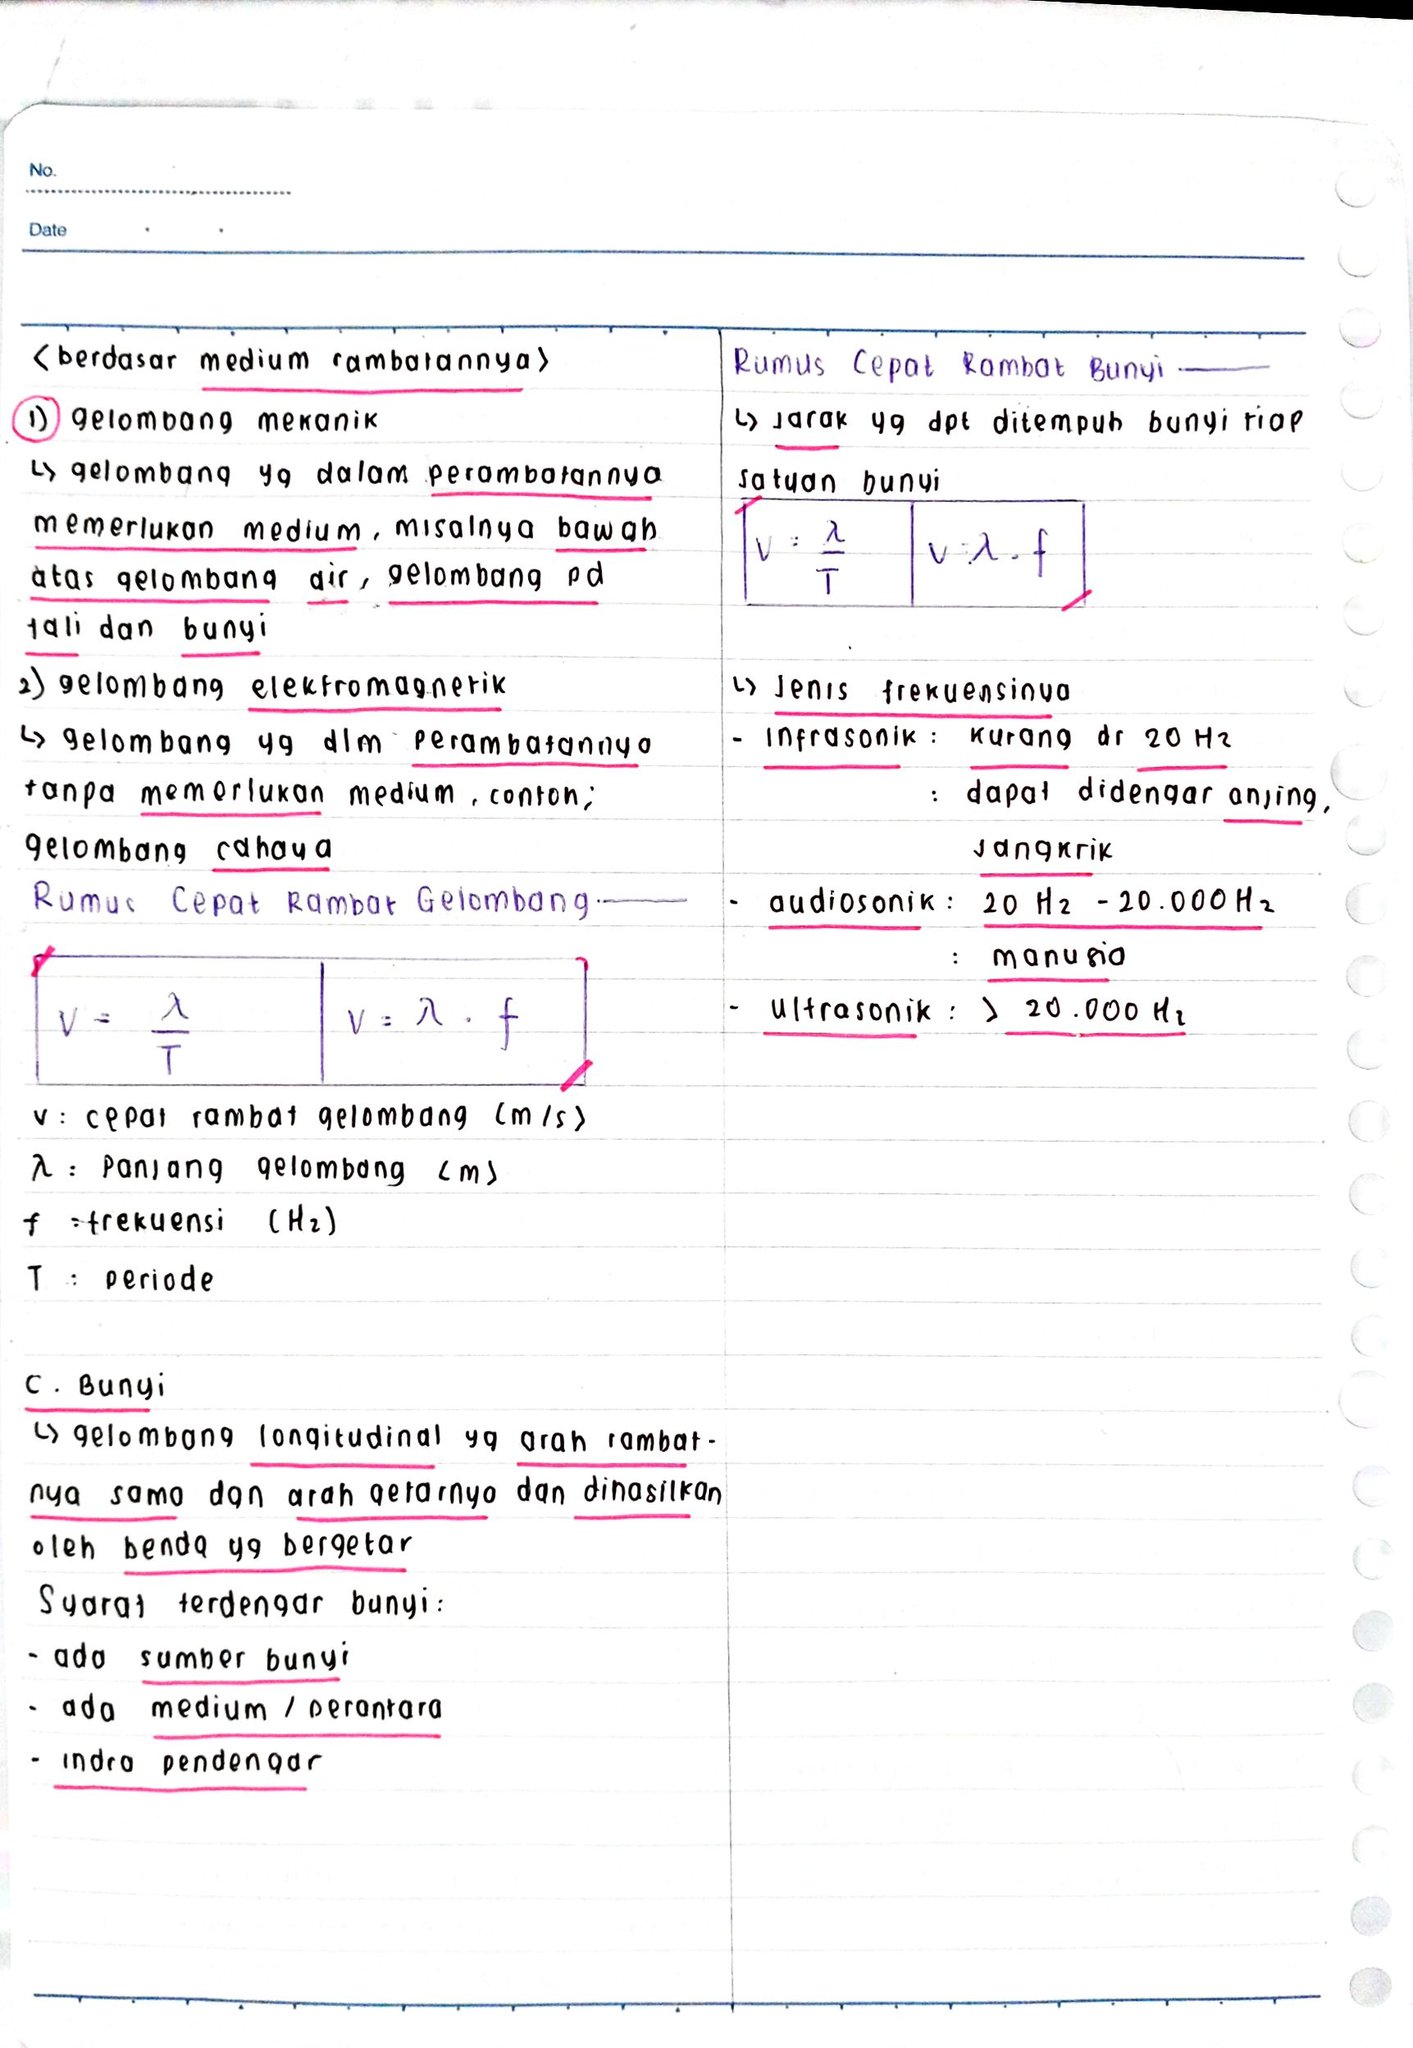 No.
Date
<berdasar medium rambatannya>
1) gelombang mekanik
↳ gelombang yg dalam perambatannya
memerlukan medium, misalnya bawah
atas gelombang air, gelombang pd
tali dan bunyi
2) gelombang elektromagnetik
↳ gelombang yg dlm perambatannya
tanpa memerlukan medium, contoh;
gelombang cahaya
Rumus Cepat Rambat Gelombang
V = λ/T | V = λ . f
v : cepat rambat gelombang (m/s)
λ : Panjang gelombang (m)
f = frekuensi (Hz)
T : periode
C. Bunyi
↳ gelombang longitudinal yg arah rambat-
nya sama dgn arah getarnya dan dihasilkan
oleh benda yg bergetar
Syarat terdengar bunyi:
- ada sumber bunyi
- ada medium / perantara
- indra pendengar
Rumus Cepat Rambat Bunyi
↳ Jarak yg dpt ditempuh bunyi tiap
satuan bunyi
V = λ/T | V = λ . f
↳ Jenis frekuensinya
- Infrasonik : kurang dr 20 Hz
: dapat didengar anjing,
jangkrik
- audiosonik : 20 Hz - 20.000 Hz
: manusia
- Ultrasonik : > 20.000 Hz